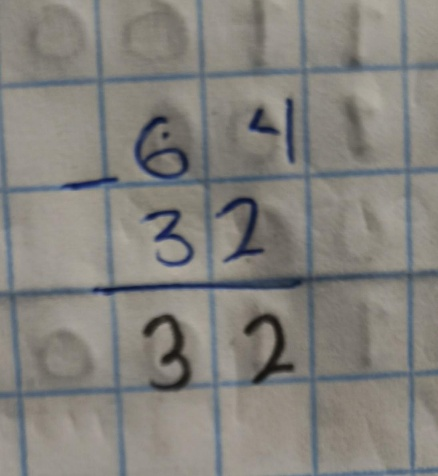 64
- 32
32